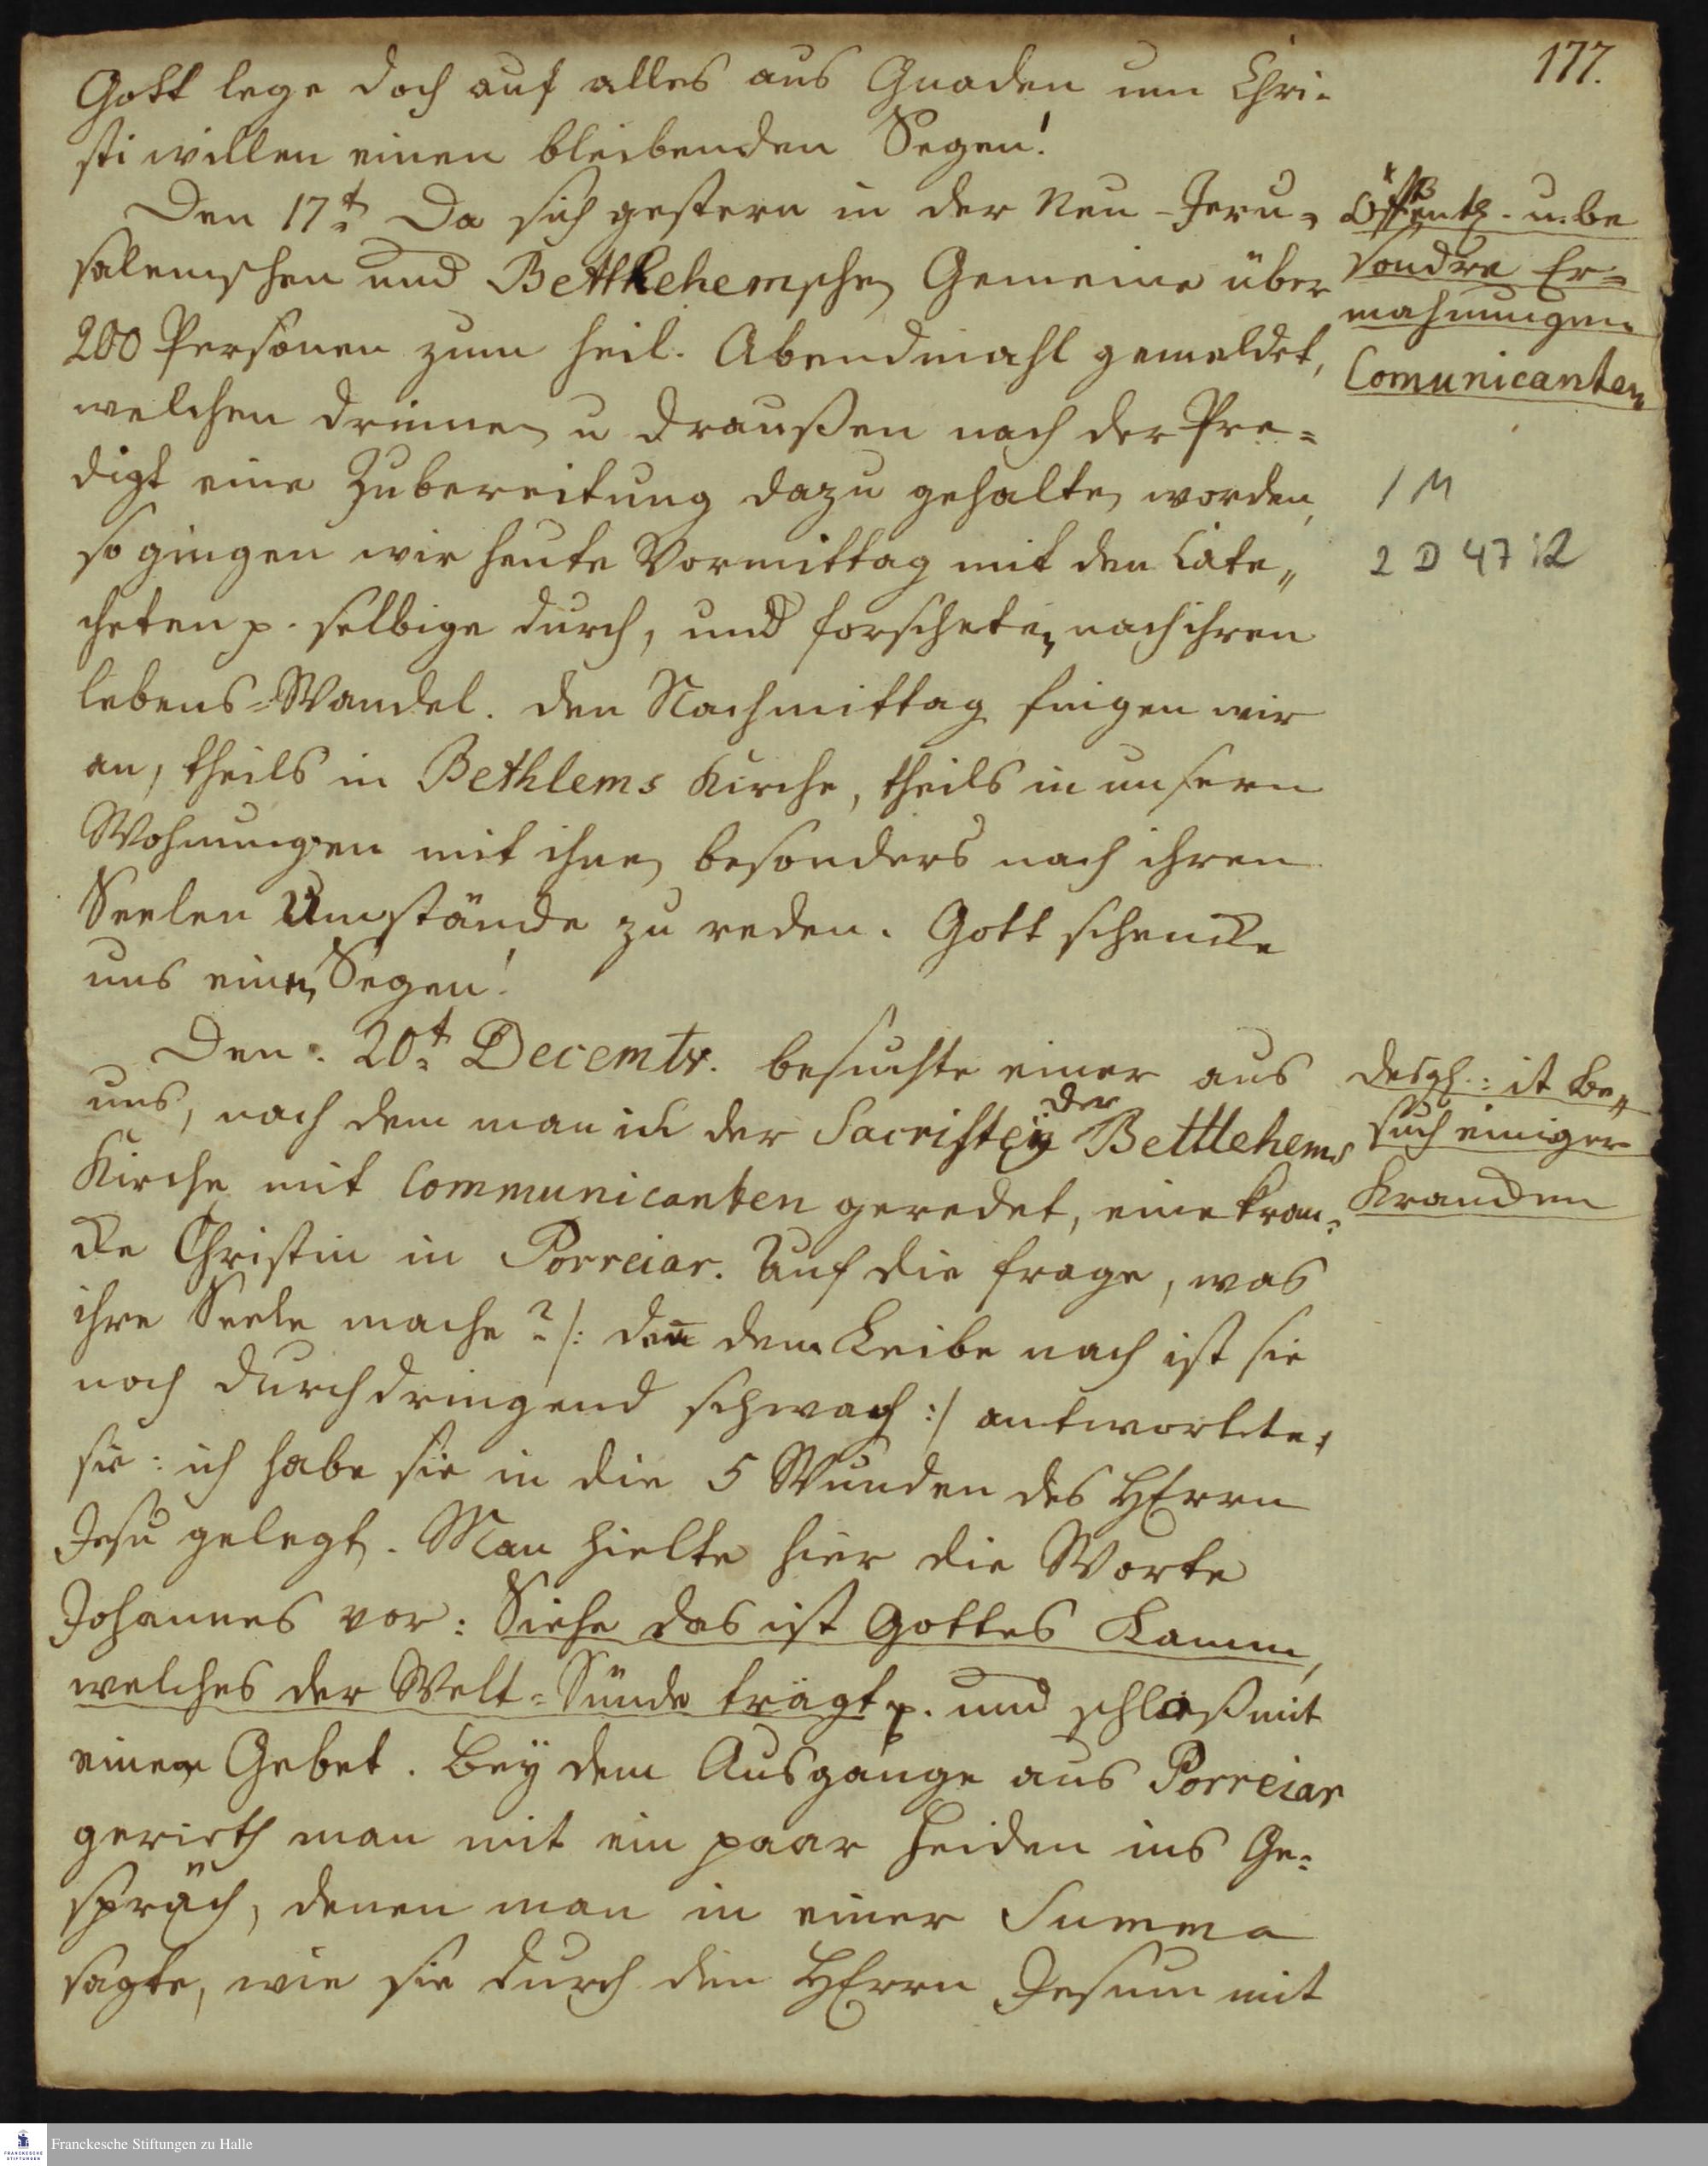 177.
Gott lege doch auf alles aus Gnaden um Chri-
sti willen einen bleibenden Segen!
Den 17t. Da sich gestern in der Neu-Jeru-
salemschen und Bethlehemschen Gemeine über
200 Personen zum heil. Abendmahl gemeldet,
welchen drinnen u draußen nach der Pre=
digt eine Zubereitung dazu gehalten worden,
so gingen wir heute Vormittag mit den Cate„
cheten p. selbige durch, und forscheten nach ihren
lebens=Wandel. den Nachmittag fingen wir
an, theils in Bethlems Kirche, theils in unsern
Wohnungen mit ihnen besonders nach ihren
Seelen Umstände zu reden. Gott schencke
uns einen Segen!
Öffentl. u. be
sondre Er=
mahnungen
Comunicanten
1 M
2 D 47 12
Den. 20t. Decembr. besuchte einer aus
uns, nach dem man in der Sacristey der Bethlehems
Kirche mit Communicanten geredet, eine kran-
cke Christin in Porreiar. Auf die frage, was
ihre Seele mache? /: den̅ dem Leibe nach ist sie
noch durchdringend schwach :/ antwortete
sie: ich habe sie in die 5 Wunden des HErrn
Jesu gelegt. Man hielte hier die Worte
Johannes vor: Siehe das ist Gottes Lamm,
welches der Welt=Sünde trägt p. und schloß mit
einem Gebet. Bey dem Ausgange aus Porreiar
gerieth man mit ein paar Heiden ins Ge-
spräch, denen man in einer Summa
sagte, wie sie durch den HErrn Jesum mit
desgl.: it Be„
such einiger
Krancken
FRANCKESCHE STIFTUNGEN
Franckesche Stiftungen zu Halle